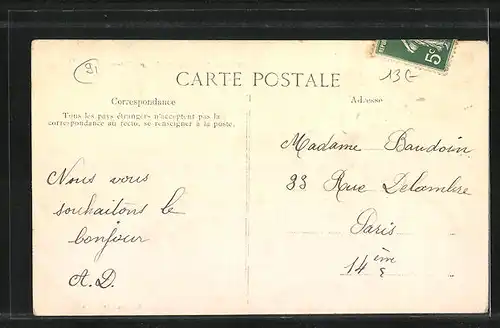 91
5c
CARTE POSTALE
13€
Correspondance
Adresse
Tous les pays étrangers n'acceptent pas la
correspondance au recto, se renseigner à la poste.
Madame Baudoin
33 Rue Delambre
Paris
14ème
Nous vous
souhaitons le
bonjour
A.D.